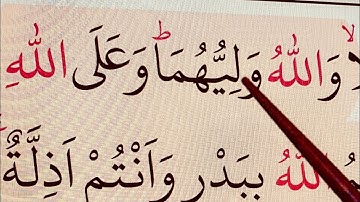 وَاللّٰهُ وَلِيُّهُمَا ؕ وَعَلَى اللّٰهِ
اللّٰهُ بِبَدْرٍ وَّاَنْتُمْ اَذِلَّةٌ